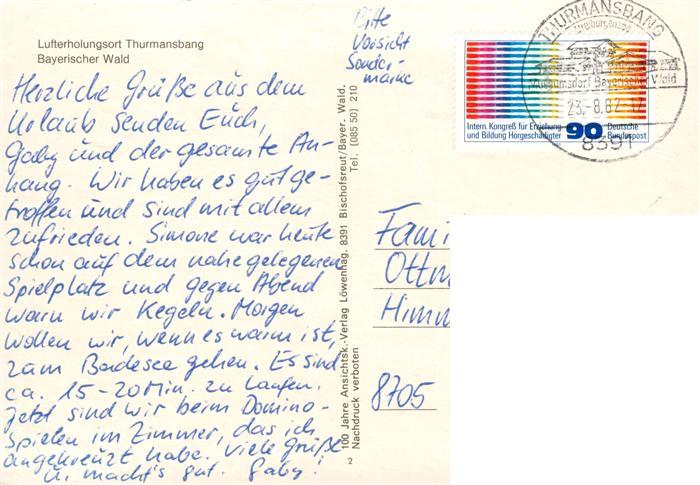 Lufterholungsort Thurmansbang
Bayerischer Wald
Herzliche Grüße aus dem
Urlaub senden Euch,
Gaby und der gesamte An-
hang. Wir haben es gut ge-
troffen und sind mit allem
zufrieden. Simone war heute
schon auf dem nahe gelegenen
Spielplatz und gegen Abend
warn wir Kegeln. Morgen
wollen wir, wenn es warm ist,
zum Badesee gehen. Es sind
ca. 15-20 Min. zu laufen.
Jetzt sind wir beim Domino-
Spielen im Zimmer, das ich
angekreuzt habe. Viele Grüße
u. macht's gut. Gaby!
Bitte
Vorsicht
Sonder-
marke
100 Jahre Ansichtsk.-Verlag Löwenhag, 8391 Bischofsreut/Bayer. Wald.
Tel. (085 50) 210
Nachdruck verboten
2
THURMANSBANG
Museumsdorf Bayerischer Wald
23.-8.82.-17
8391
Intern. Kongreß für Erziehung
und Bildung Hörgeschädigter
90
Deutsche
Bundespost
Fami
Ottm
Himm
8705